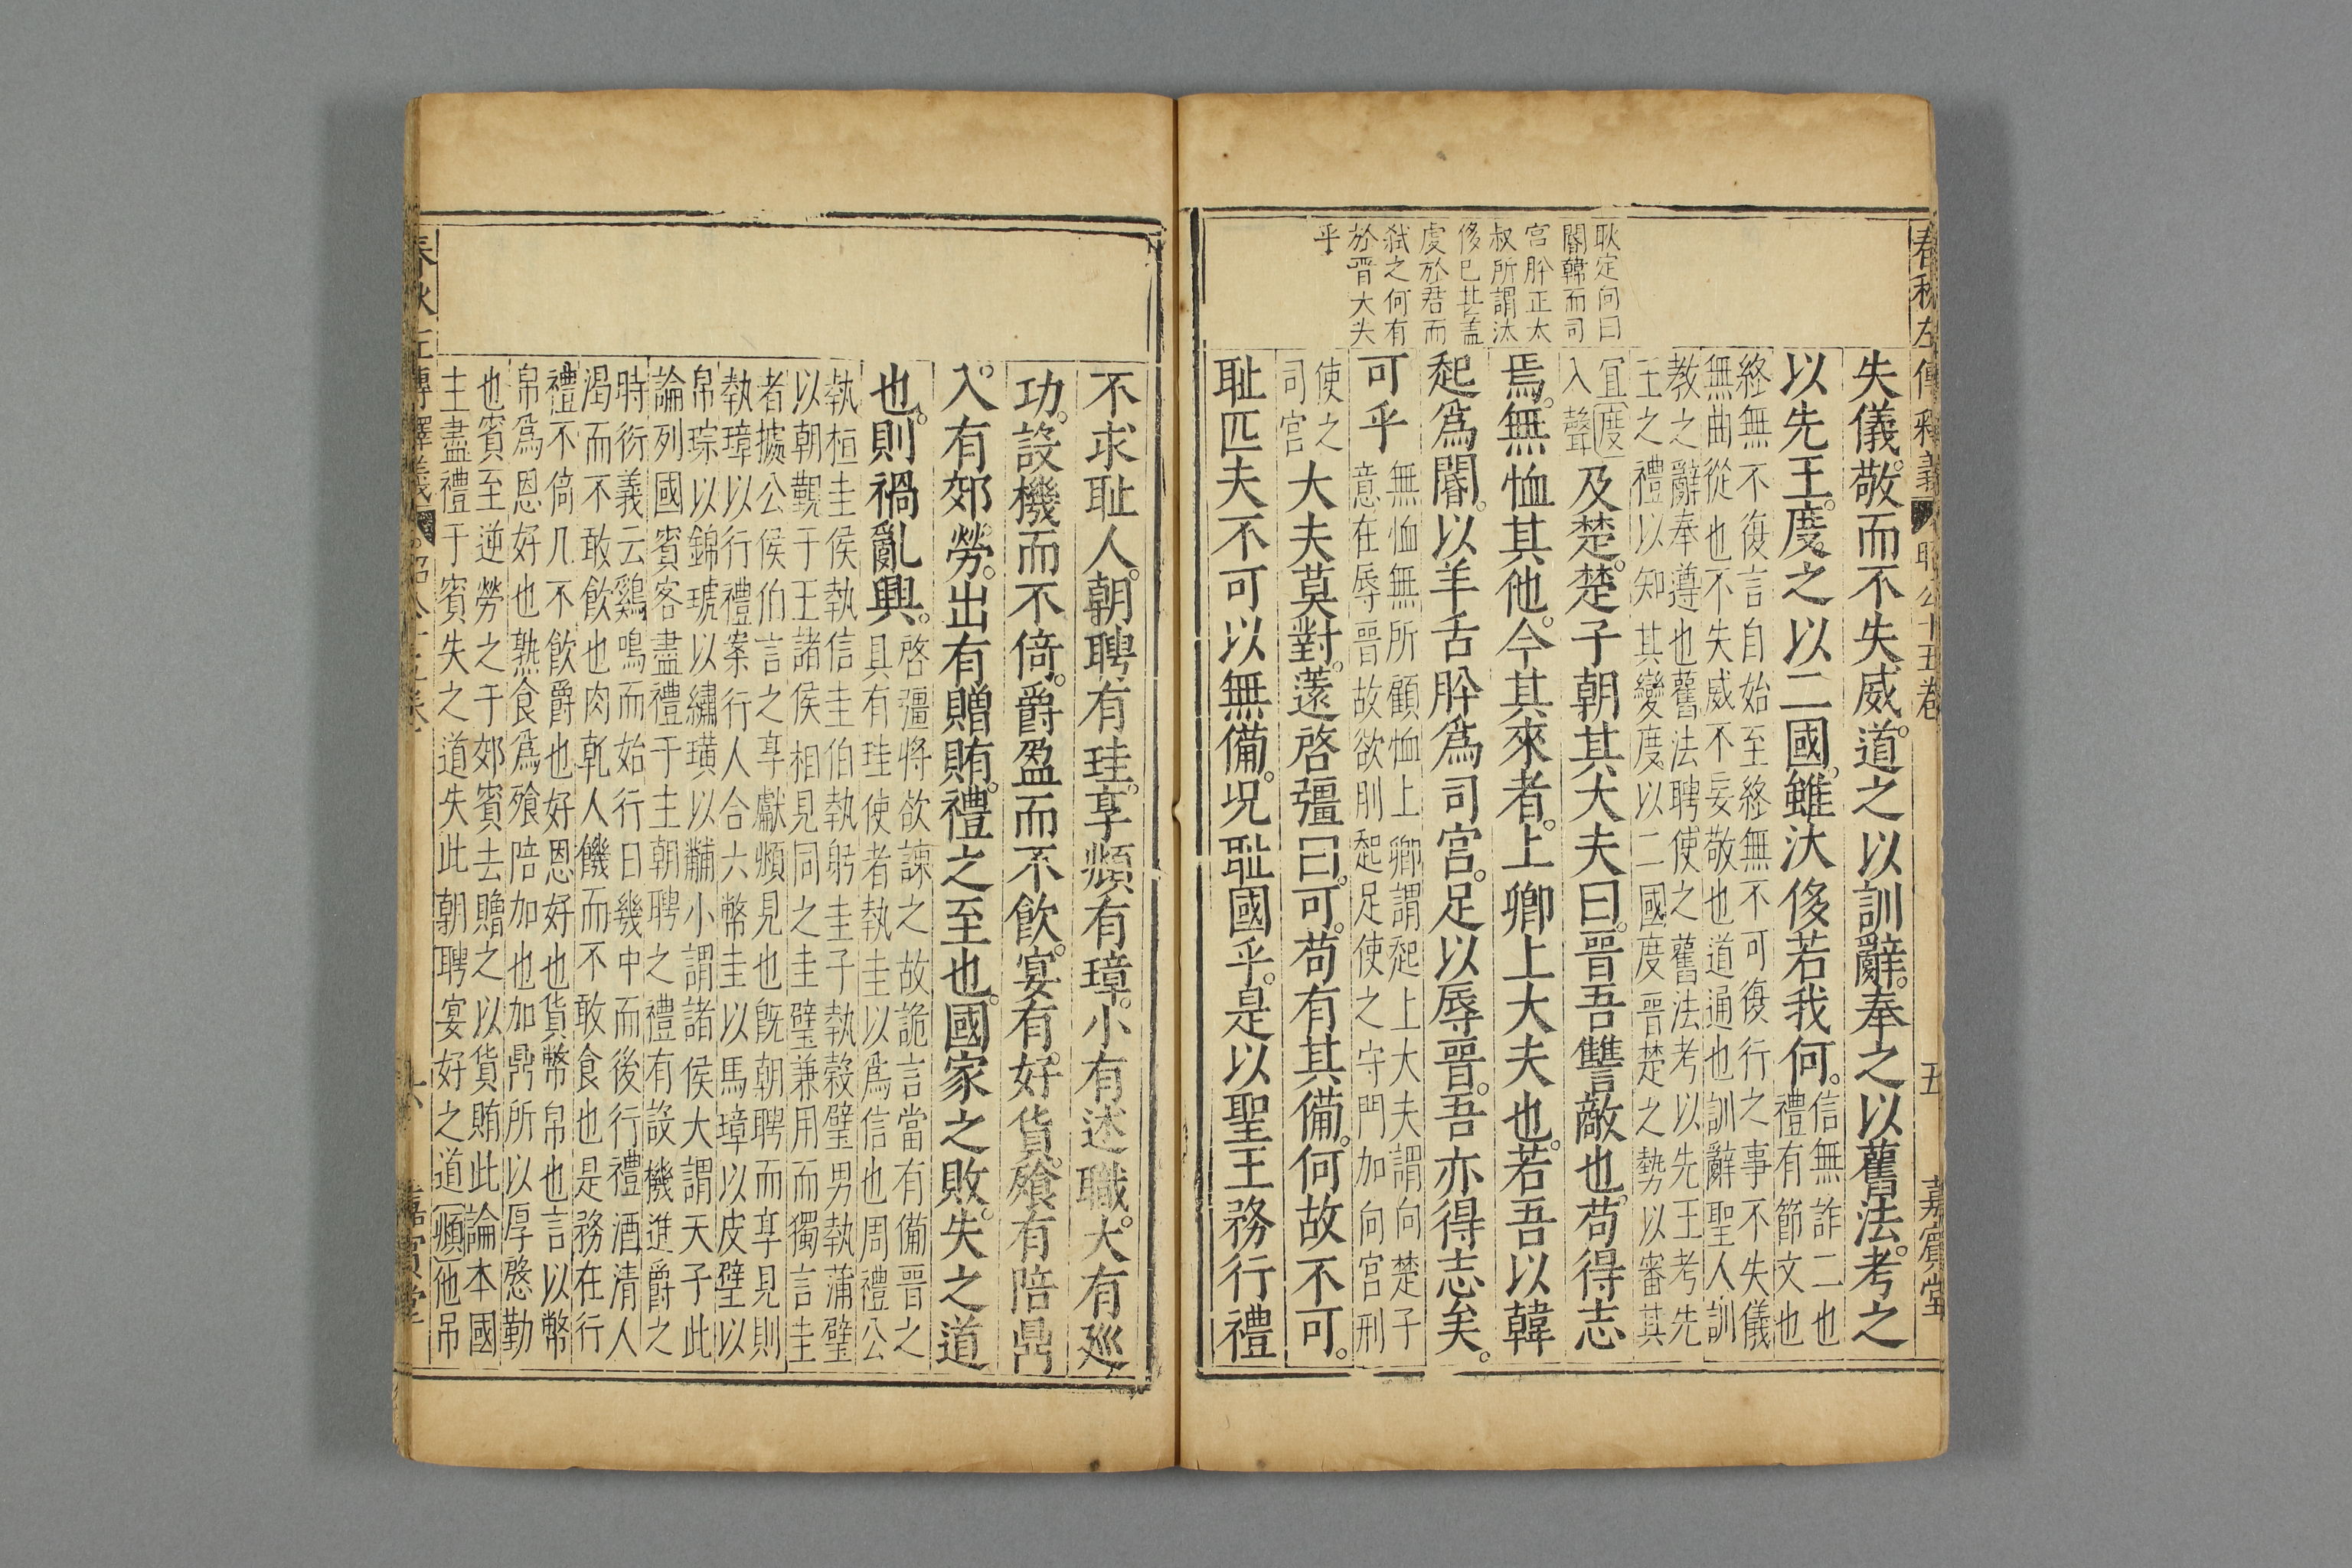 春秋左傳釋義 昭公十五卷 五 嘉賓堂
耿定向曰
閽韓而司
宮肸正太
叔所謂汰
侈已甚蓋
虔於君而
弑之何有
於晋大夫
乎
失儀敬而不失威道之以訓辭奉之以舊法考之
以先王度之以二國雖汰侈若我何信無詐二也
禮有節文也
終無不復言自始至終無不可復行之事不失儀
無曲從也不失威不妄敬也道通也訓辭聖人訓
教之辭奉遵也舊法聘使之舊法考以先王考先
王之禮以知其變度以二國度晋楚之勢以審其
宜度
入聲
及楚楚子朝其大夫曰晋吾讐敵也苟得志
焉無恤其他今其來者上卿上大夫也若吾以韓
起爲閽以羊舌肸爲司宮足以辱晋吾亦得志矣
可乎無恤無所顧恤上卿謂起上大夫謂向楚子
意在辱晋故欲刖起足使之守門加向宮刑
使之
司宮
大夫莫對薳啓彊曰可苟有其備何故不可
耻匹夫不可以無備況耻國乎是以聖王務行禮
不求耻人朝聘有珪享頫有璋小有述職大有廵
功設機而不倚爵盈而不飲宴有好貨飱有陪鼎
入有郊勞出有贈賄禮之至也國家之敗失之道
也則禍亂興啓彊將欲諫之故詭言當有備晋之
具有珪使者執圭以爲信也周禮公
執桓圭侯執信圭伯執躬圭子執榖璧男執蒲璧
以朝覲于王諸侯相見同之圭璧兼用而獨言圭
者擄公侯伯言之享獻頫見也既朝聘而享見則
執璋以行禮案行人合六幣圭以馬璋以皮璧以
帛琮以錦琥以繡璜以黼小謂諸侯大謂天子此
論列國賓客盡禮于主朝聘之禮有設機進爵之
時衍義云鷄鳴而始行日幾中而後行禮酒清人
渴而不敢飲也肉乾人饑而不敢食也是務在行
禮不倚几不飲爵也好恩好也貨幣帛也言以幣
帛爲恩好也熟食爲飱陪加也加鼎所以厚慇勤
也賓至逆勞之于郊賓去贈之以貨賄此論本國
主盡禮于賓失之道失此朝聘宴好之道頫他吊